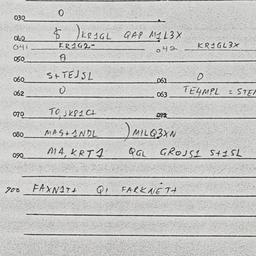 030 O
040 KR1GL QAP M1L3X
041 KR1G2- 042 KR1GL3X
050 A
060 S+TEJSL 061 O
062 O 063 TE4MPL = STE
070 072
080 MAS+1NDL ) MILQ3XN
090 MA, KRT1 QGL GROJS1 S+1SL
900 FAXN1T+ Q1 FARKNET+